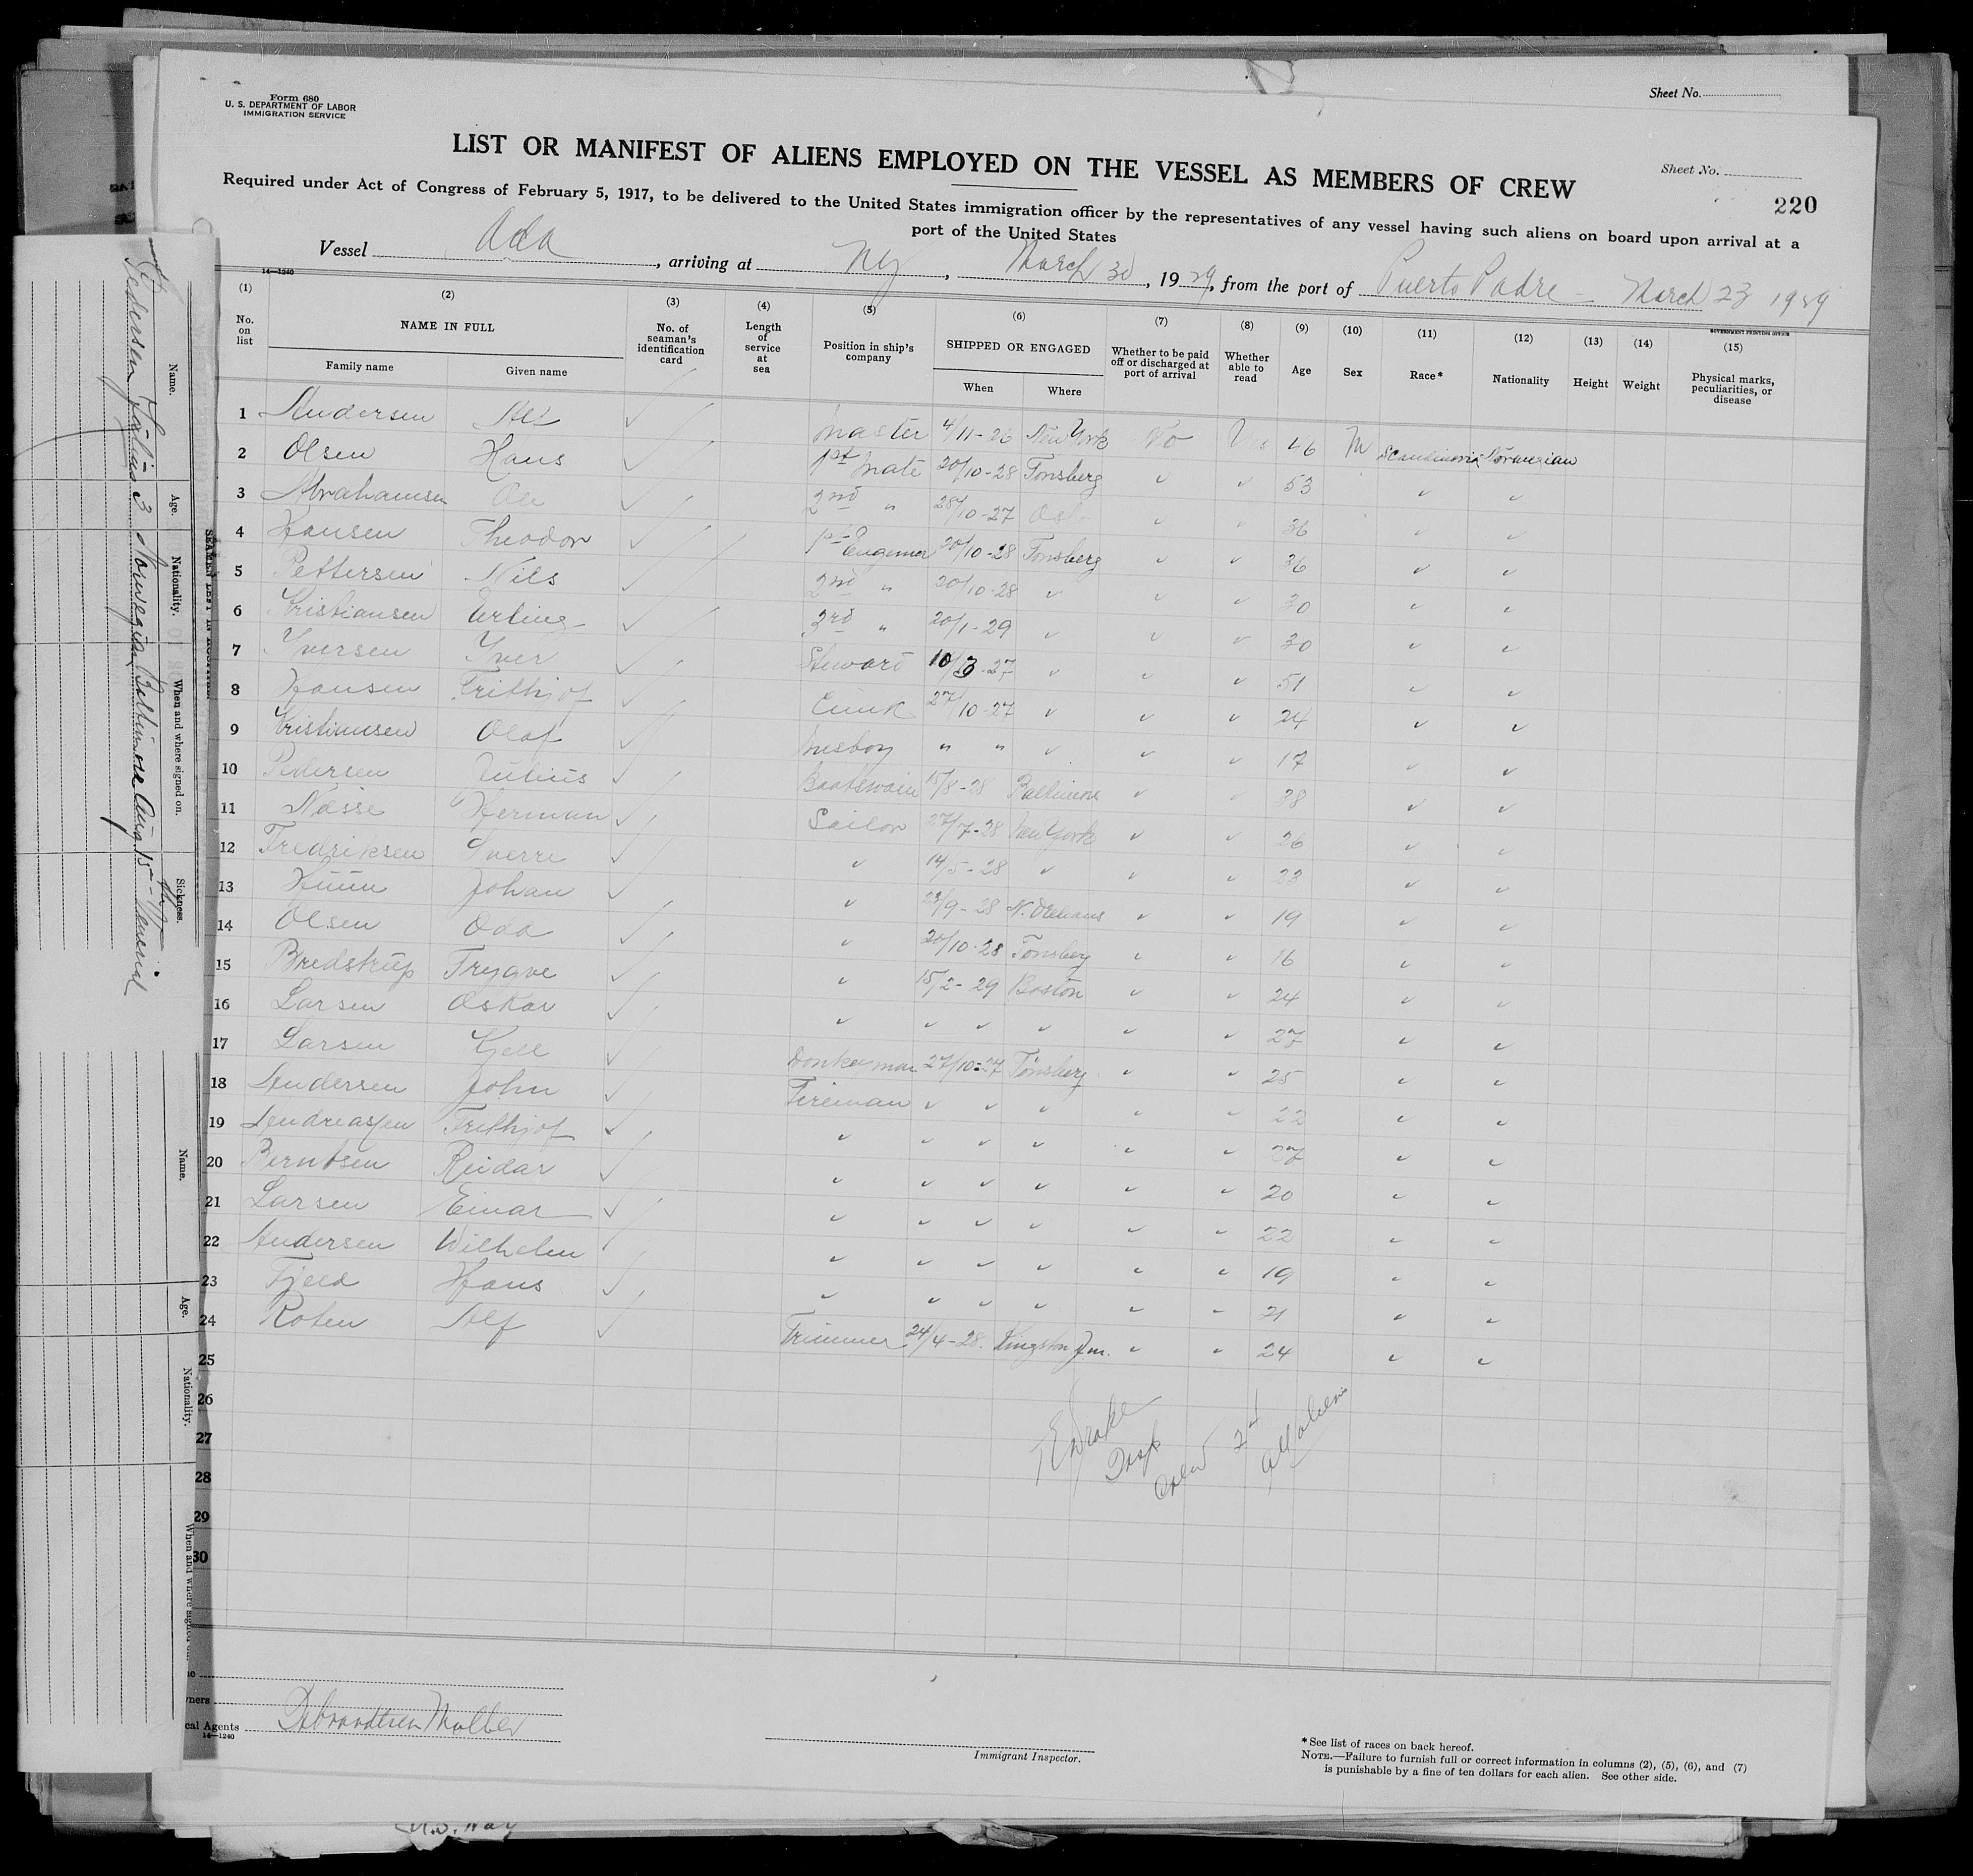 Form 680
U. S. DEPARTMENT OF LABOR
IMMIGRATION SERVICE
Sheet No.
LIST OR MANIFEST OF ALIENS EMPLOYED ON THE VESSEL AS MEMBERS OF CREW
Sheet No.
220
Required under Act of Congress of February 5, 1917, to be delivered to the United States immigration officer by the representatives of any vessel having such aliens on board upon arrival at a
port of the United States
Vessel Ada, arriving at Ny, March 30, 1929, from the port of Puerto Padre - March 23 1929
14—1240
GOVERNMENT PRINTING OFFICE
(1) No. on list (2) NAME IN FULL Family name Given name (3) No. of seaman's identification card (4) Length of service at sea (5) Position in ship's company (6) SHIPPED OR ENGAGED When Where (7) Whether to be paid off or discharged at port of arrival (8) Whether able to read (9) Age (10) Sex (11) Race* (12) Nationality (13) Height (14) Weight (15) Physical marks, peculiarities, or disease
1 Andersen Alf ✓ Master 4/11-26 New York No Yes 46 M Scandinavia Norwegian
2 Olsen Hans ✓ 1st Mate 20/10-28 Tonsberg ✓ ✓ 53 ✓ ✓
3 Abrahamsen Ole ✓ 2nd " 28/10-27 Oslo ✓ ✓ 36 ✓ ✓
4 Hansen Theodor ✓ 1st Enginner 20/10-28 Tonsberg ✓ ✓ 36 ✓ ✓
5 Pettersen Nils ✓ 2nd " 20/10-28 ✓ ✓ ✓ 30 ✓ ✓
6 Kristiansen Erling ✓ 3rd " 20/1-29 ✓ ✓ ✓ 30 ✓ ✓
7 Yversen Yver ✓ Stuward 10/3-27 ✓ ✓ ✓ 51 ✓ ✓
8 Hansen Frithjof ✓ 27/10-27 ✓ ✓ ✓ 24 ✓ ✓
9 Kristiansen Olaf ✓ Mesboy " " ✓ ✓ ✓ 17 ✓ ✓
10 Pedersen Julius ✓ Boatswain 15/8-28 Baltimore ✓ ✓ 38 ✓ ✓
11 Nasse Herman ✓ Sailor 27/7-28 New York ✓ ✓ 26 ✓ ✓
12 Fredriksen Sverre ✓ ✓ 14/5-28 ✓ ✓ ✓ 23 ✓ ✓
13 Huun Johan ✓ ✓ 23/9-28 N. Orleans ✓ ✓ 19 ✓ ✓
14 Olsen Odd ✓ ✓ 20/10-28 Tonsberg ✓ ✓ 16 ✓ ✓
15 Bredstrup Trygve ✓ ✓ 15/2-29 Boston ✓ ✓ 24 ✓ ✓
16 Larsen Oskar ✓ ✓ ✓ ✓ ✓ ✓ ✓ 27 ✓ ✓
17 Larsen Kjell ✓ Donkeyman 27/10-27 Tonsberg ✓ ✓ 25 ✓ ✓
18 Andersen John ✓ Fireman ✓ ✓ ✓ ✓ ✓ 22 ✓ ✓
19 Andreassen Frithjof ✓ ✓ ✓ ✓ ✓ ✓ ✓ 27 ✓ ✓
20 Berntsen Reidar ✓ ✓ ✓ ✓ ✓ ✓ ✓ 20 ✓ ✓
21 Larsen Einar ✓ ✓ ✓ ✓ ✓ ✓ ✓ 22 ✓ ✓
22 Andersen Wilhelm ✓ ✓ ✓ ✓ ✓ ✓ ✓ 19 ✓ ✓
23 Fjeld Hans ✓ ✓ ✓ ✓ ✓ ✓ ✓ 21 ✓ ✓
24 Roten Alf ✓ Trimmer 24/4-28. Kingston Jm. ✓ ✓ 24 ✓ ✓
25
26
27
28
29
30
Drake
Insp
Crew 24
all aliens
cal Agents
14—1240
Immigrant Inspector.
* See list of races on back hereof.
NOTE.—Failure to furnish full or correct information in columns (2), (5), (6), and (7)
is punishable by a fine of ten dollars for each alien. See other side.
Name. Age. Nationality. When and where signed on. Sickness.
Pedersen Julius 3 Norwegian Baltimore Aug. 15th - Venerial
Name. Age. Nationality. When and where signed